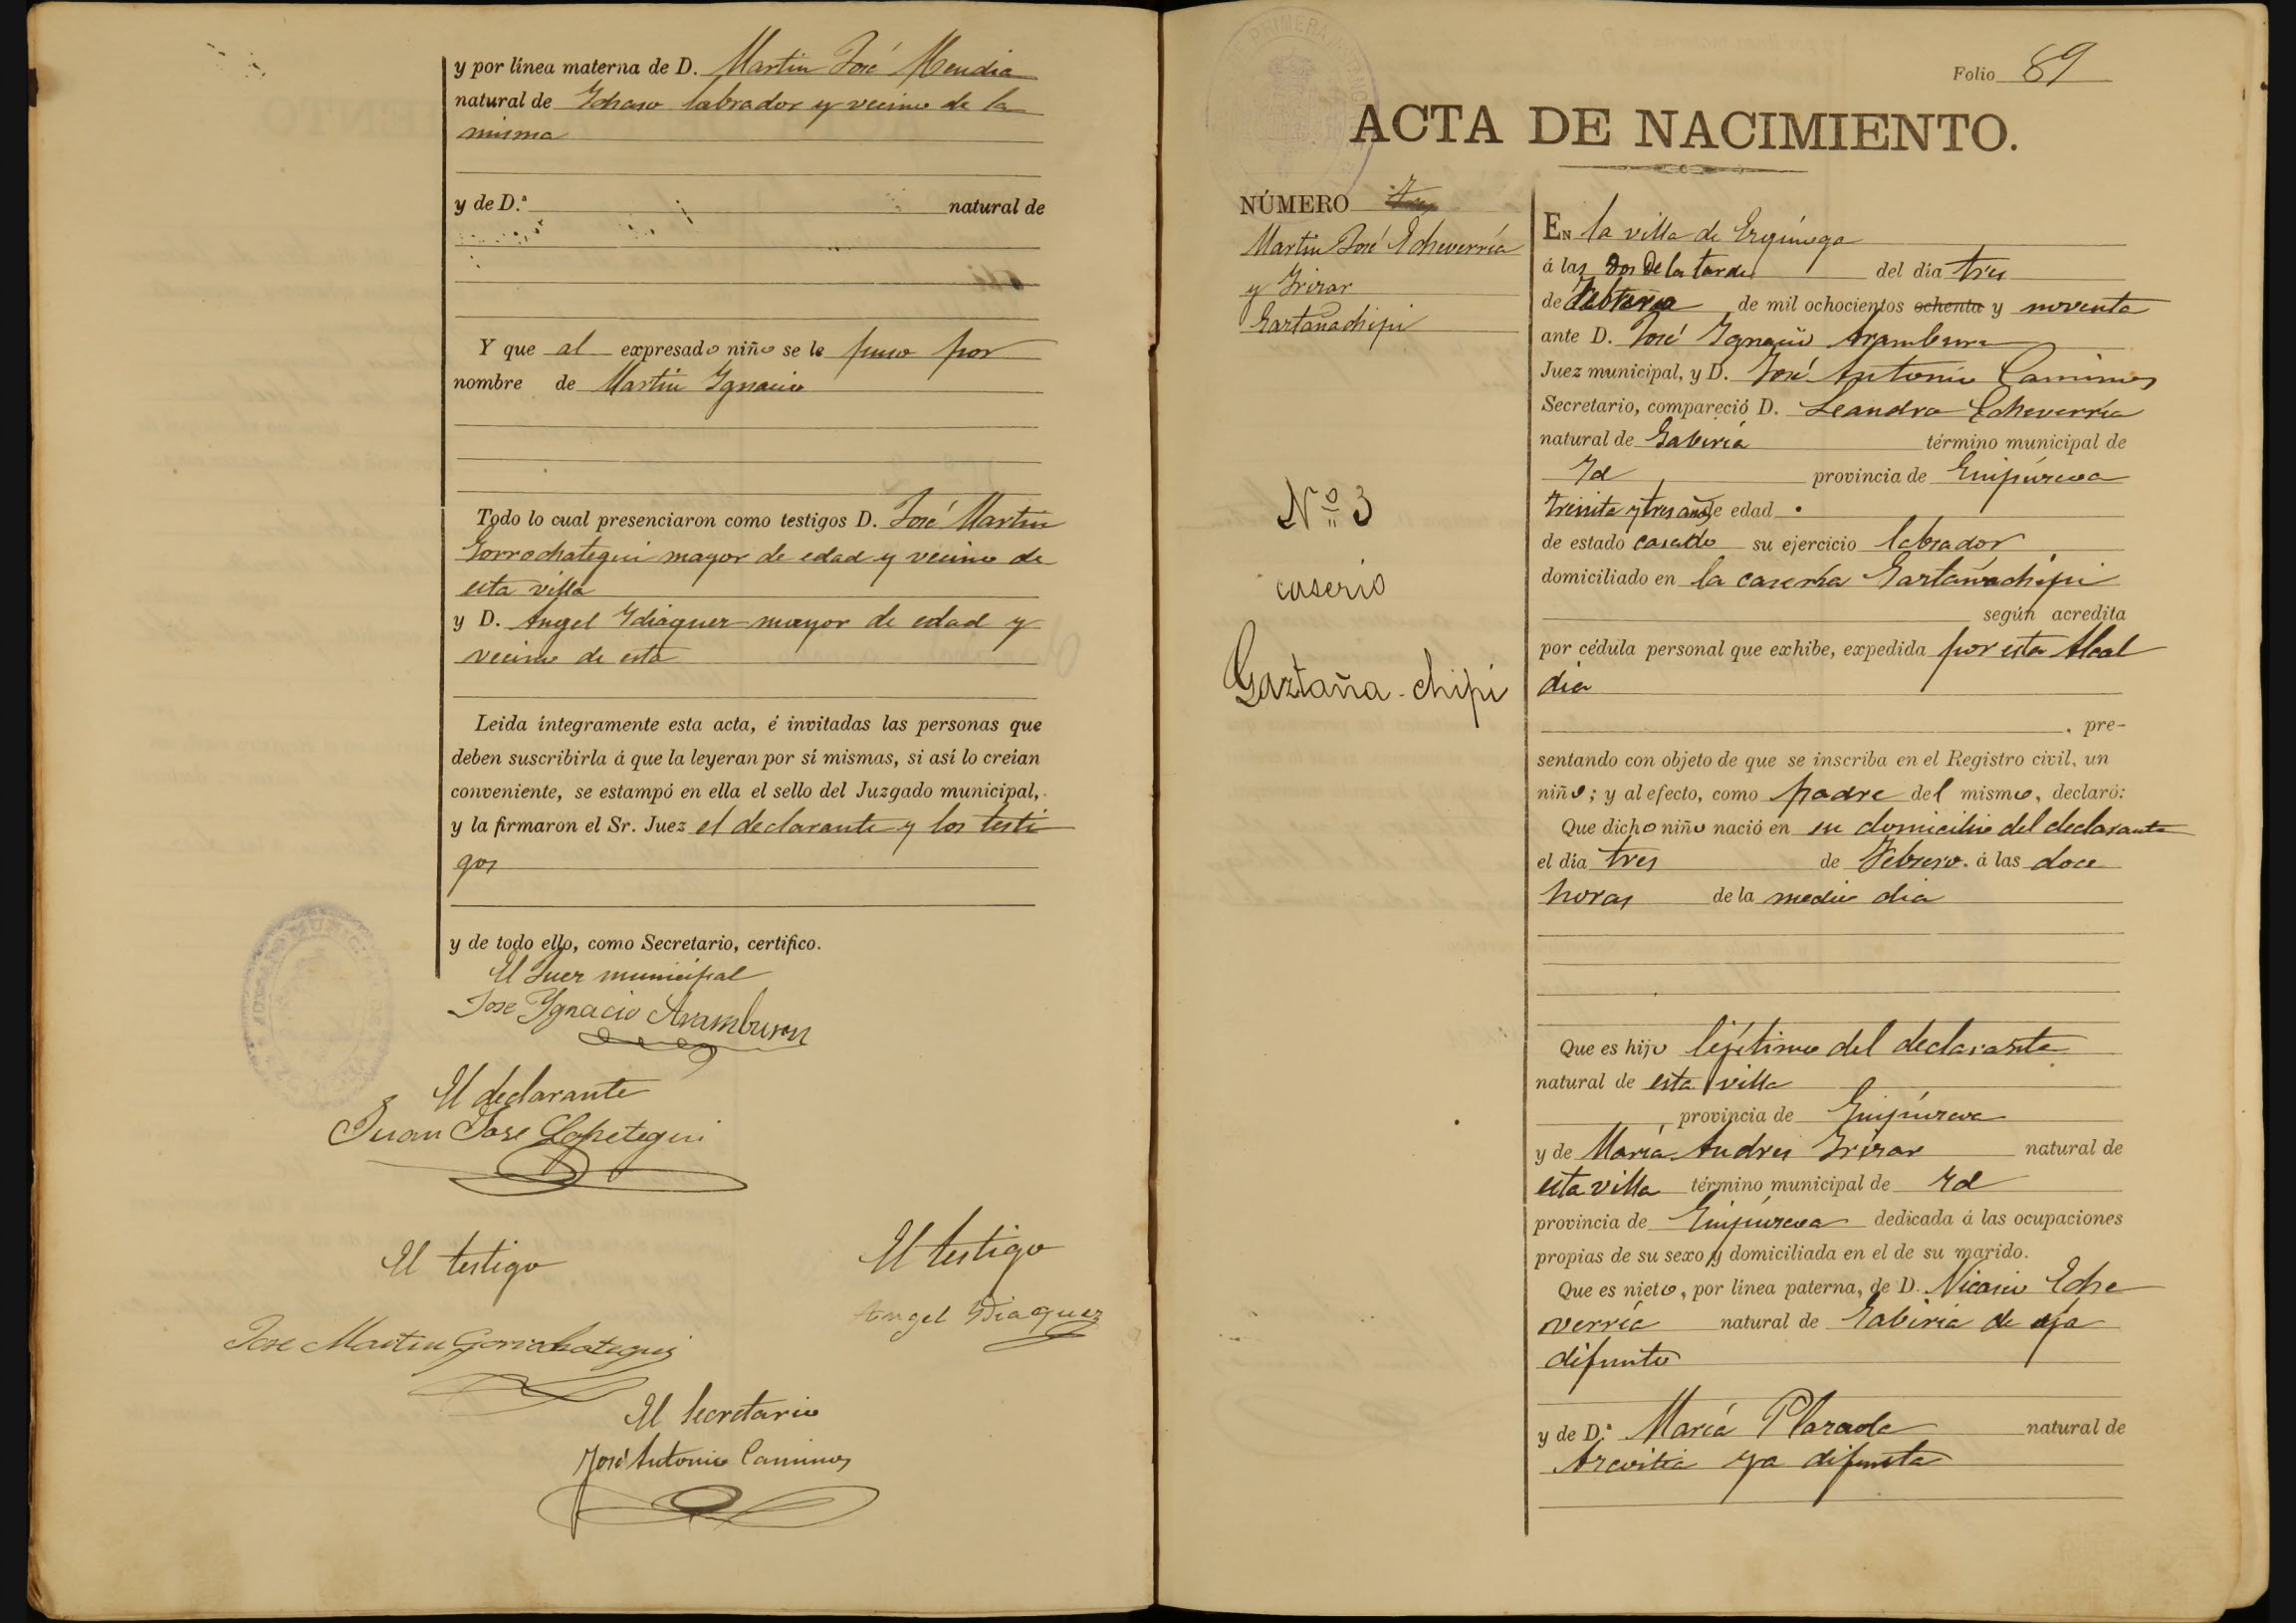 y por línea materna de D. Martin José Mendia
natural de Ichaso labrador y vecino de la
misma
y de D.ª natural de
Y que al expresado niño se le puso por
nombre de Martin Ygnacio
Todo lo cual presenciaron como testigos D. José Martin
Gorrochategui mayor de edad y vecino de
esta villa
y D. Angel Ydiaquez mayor de edad y
vecino de esta
Leida íntegramente esta acta, é invitadas las personas que
deben suscribirla á que la leyeran por sí mismas, si así lo creían
conveniente, se estampó en ella el sello del Juzgado municipal,
y la firmaron el Sr. Juez el declarante y los testi
gos
y de todo ello, como Secretario, certifico.
El Juez municipal
Jose Ygnacio Aramburu
El declarante
Juan Jose Lopetegui
El testigo
El testigo
Angel Ydiaquez
Jose Martin Gorrochategui
El Secretario
José Antonio Caminos
Folio 89
ACTA DE NACIMIENTO.
NÚMERO
Martin José Echeverría
y Yrizar
Gaztañachipi
Nº 3
caserio
Gaztaña-chipi
EN la villa de Ezquioga
á las dos de la tarde del dia tres
de Febrero de mil ochocientos ochenta y noventa
ante D. José Ygnacio Aramburu
Juez municipal, y D. José Antonio Caminos
Secretario, compareció D. Leandro Echeverría
natural de Gabiria término municipal de
Yd provincia de Guipúzcoa
treinta y tres años de edad
de estado casado su ejercicio labrador
domiciliado en la caseria Gaztañachipi
según acredita
por cédula personal que exhibe, expedida por esta Alcal
dia
pre-
sentando con objeto de que se inscriba en el Registro civil, un
niño; y al efecto, como padre del mismo, declaró:
Que dicho niño nació en su domicilio del declarante
el dia tres de Febrero á las doce
horas de la medio dia
Que es hijo legítimo del declarante
natural de esta villa
provincia de Guipúzcoa
y de María Andres Yrizar natural de
esta villa término municipal de Yd
provincia de Guipúzcoa dedicada á las ocupaciones
propias de su sexo y domiciliada en el de su marido.
Que es nieto, por línea paterna, de D. Nicasio Eche
verría natural de Gabiria
difunto
y de D.ª María Plazaola natural de
Arcoitia ya difunta